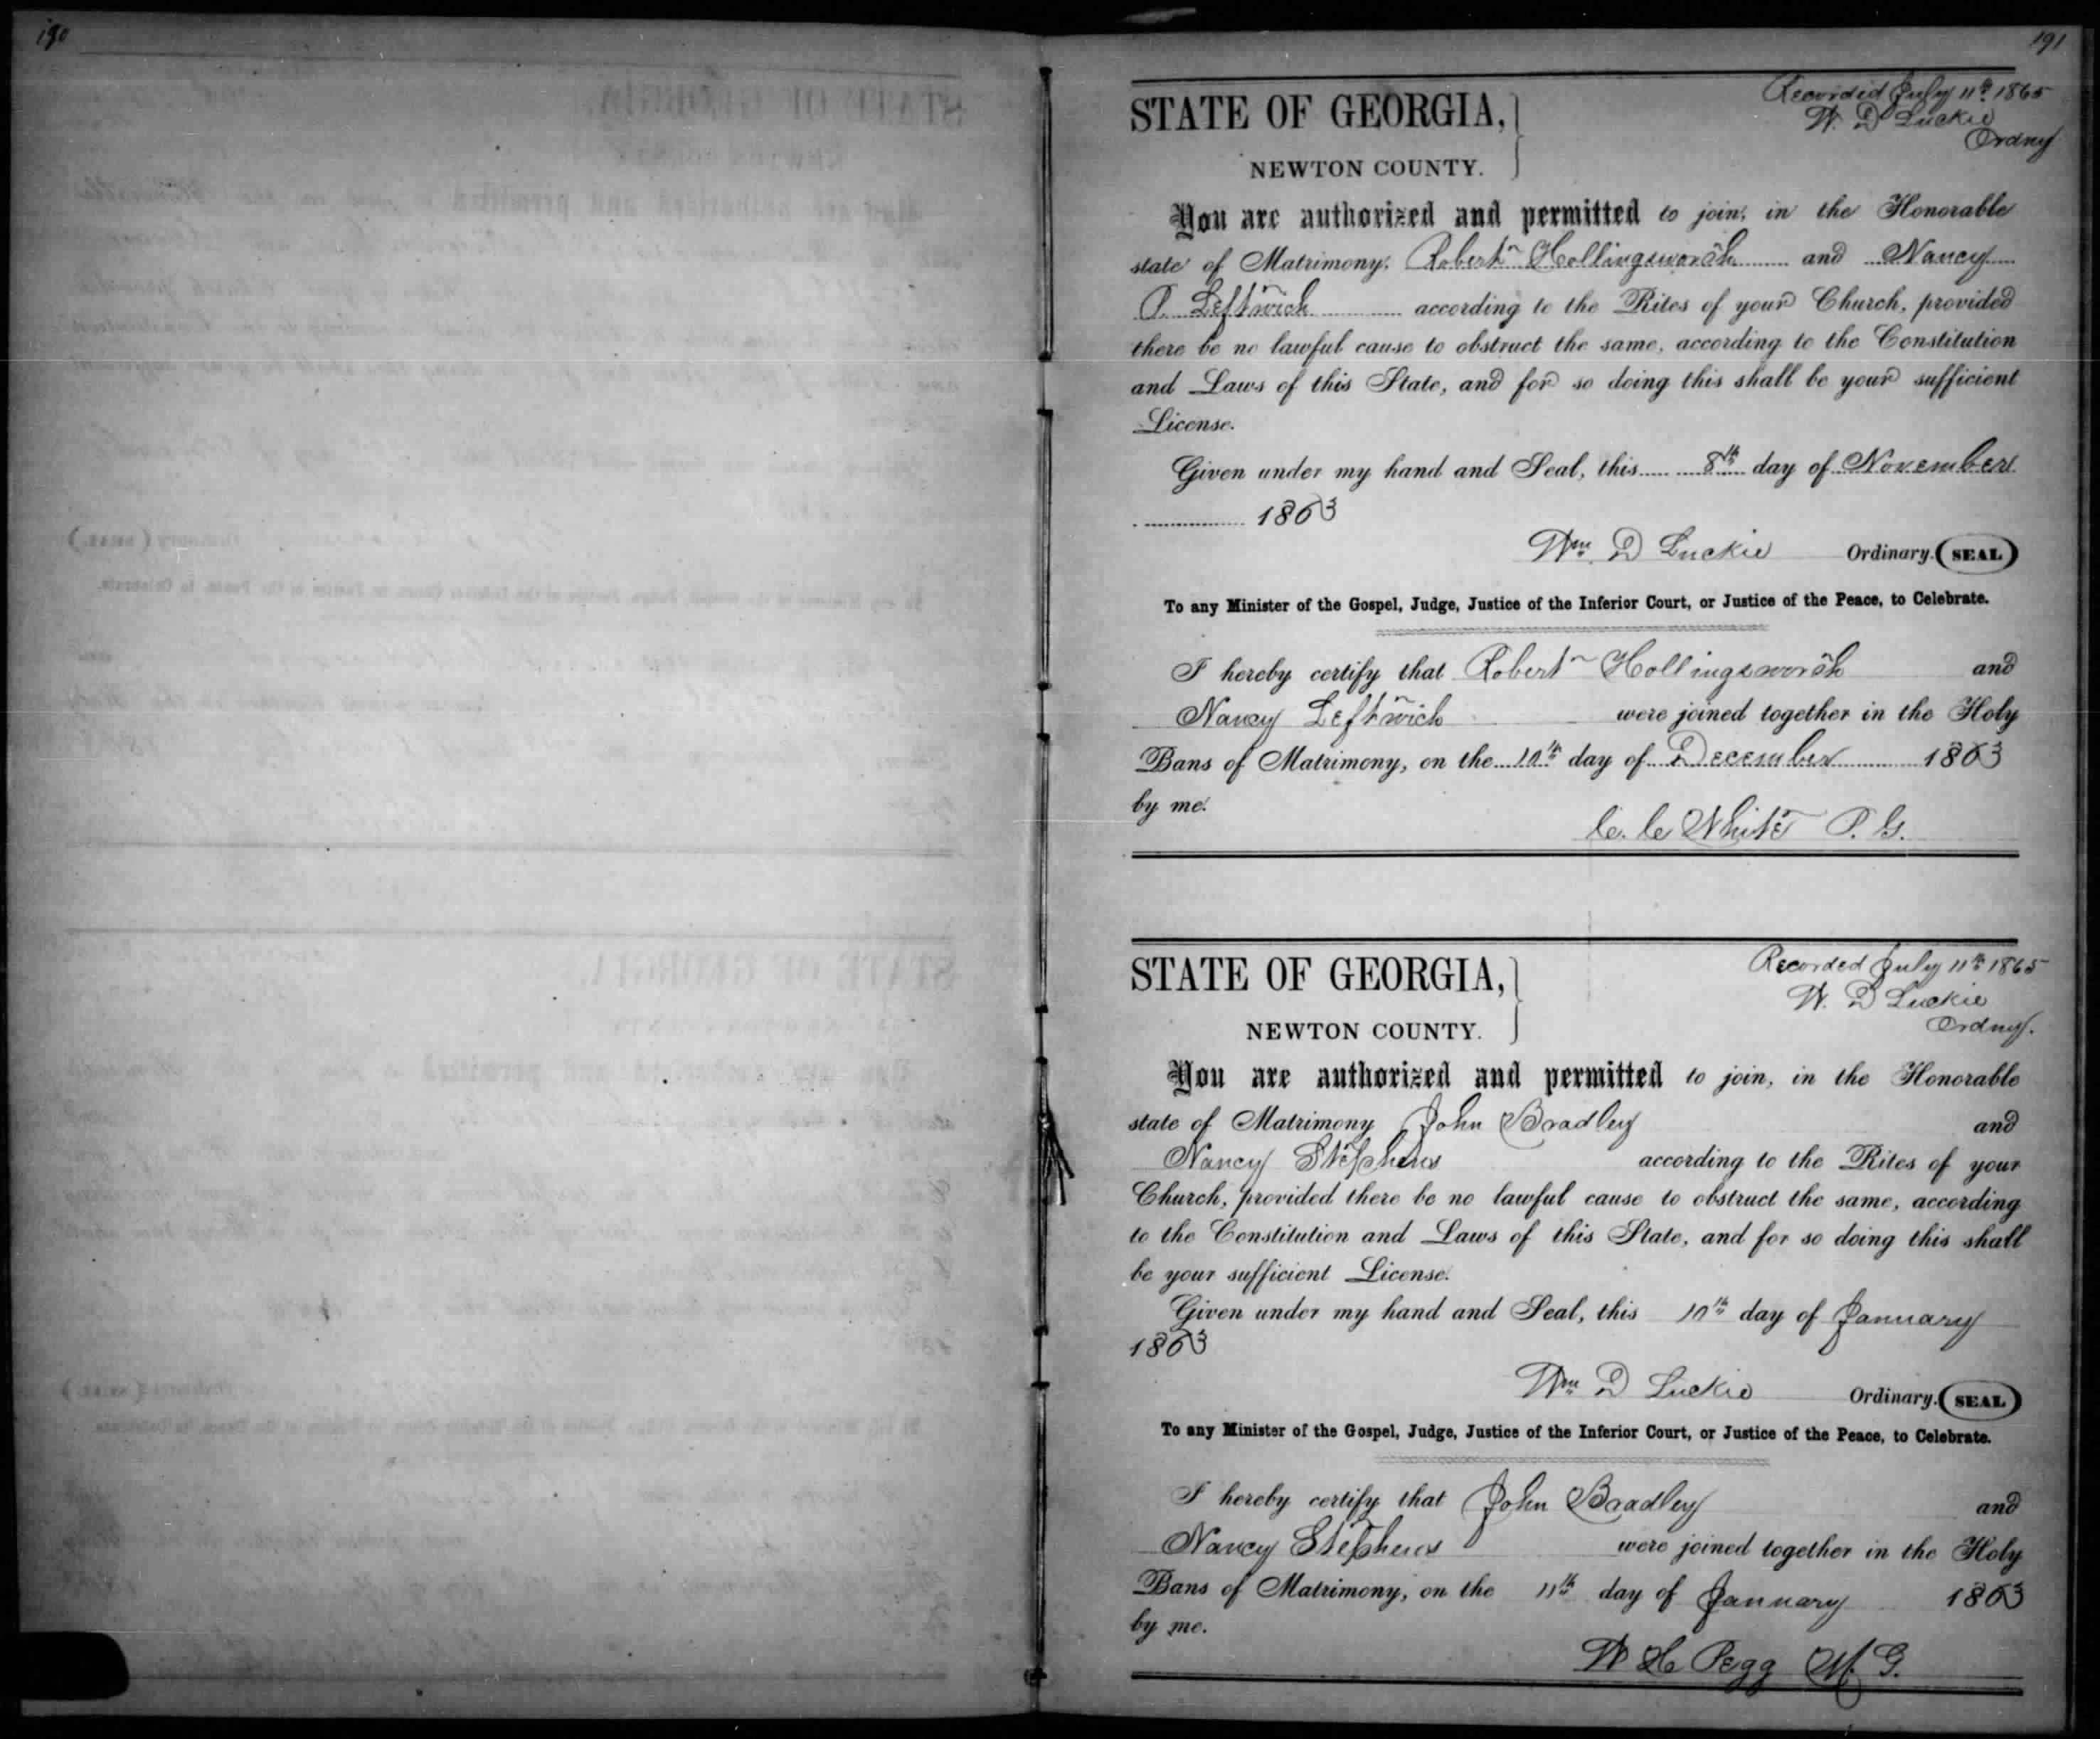 190
191
Recorded July 11th 1865
W. D Luckie
Ordny
STATE OF GEORGIA,
NEWTON COUNTY.
You are authorized and permitted to join, in the Honorable
state of Matrimony, Robert Hollingsworth and Nancy
P. Leftwich according to the Rites of your Church, provided
there be no lawful cause to obstruct the same, according to the Constitution
and Laws of this State, and for so doing this shall be your sufficient
License.
Given under my hand and Seal, this 8th day of November
1863
Wm. D Luckie Ordinary. (SEAL)
To any Minister of the Gospel, Judge, Justice of the Inferior Court, or Justice of the Peace, to Celebrate.
I hereby certify that Robert Hollingsworth and
Nancy Leftwich were joined together in the Holy
Bans of Matrimony, on the 10th day of December 1863
by me.
C. C White P. G.
Recorded July 11th 1865
W. D Luckie
Ordny.
STATE OF GEORGIA,
NEWTON COUNTY.
You are authorized and permitted to join, in the Honorable
state of Matrimony John Bradley and
Nancy Stephens according to the Rites of your
Church, provided there be no lawful cause to obstruct the same, according
to the Constitution and Laws of this State, and for so doing this shall
be your sufficient License.
Given under my hand and Seal, this 10th day of January
1863
Wm D Luckie Ordinary. (SEAL)
To any Minister of the Gospel, Judge, Justice of the Inferior Court, or Justice of the Peace, to Celebrate.
I hereby certify that John Bradley and
Nancy Stephens were joined together in the Holy
Bans of Matrimony, on the 11th day of January 1863
by me.
W H Pegg M. G.